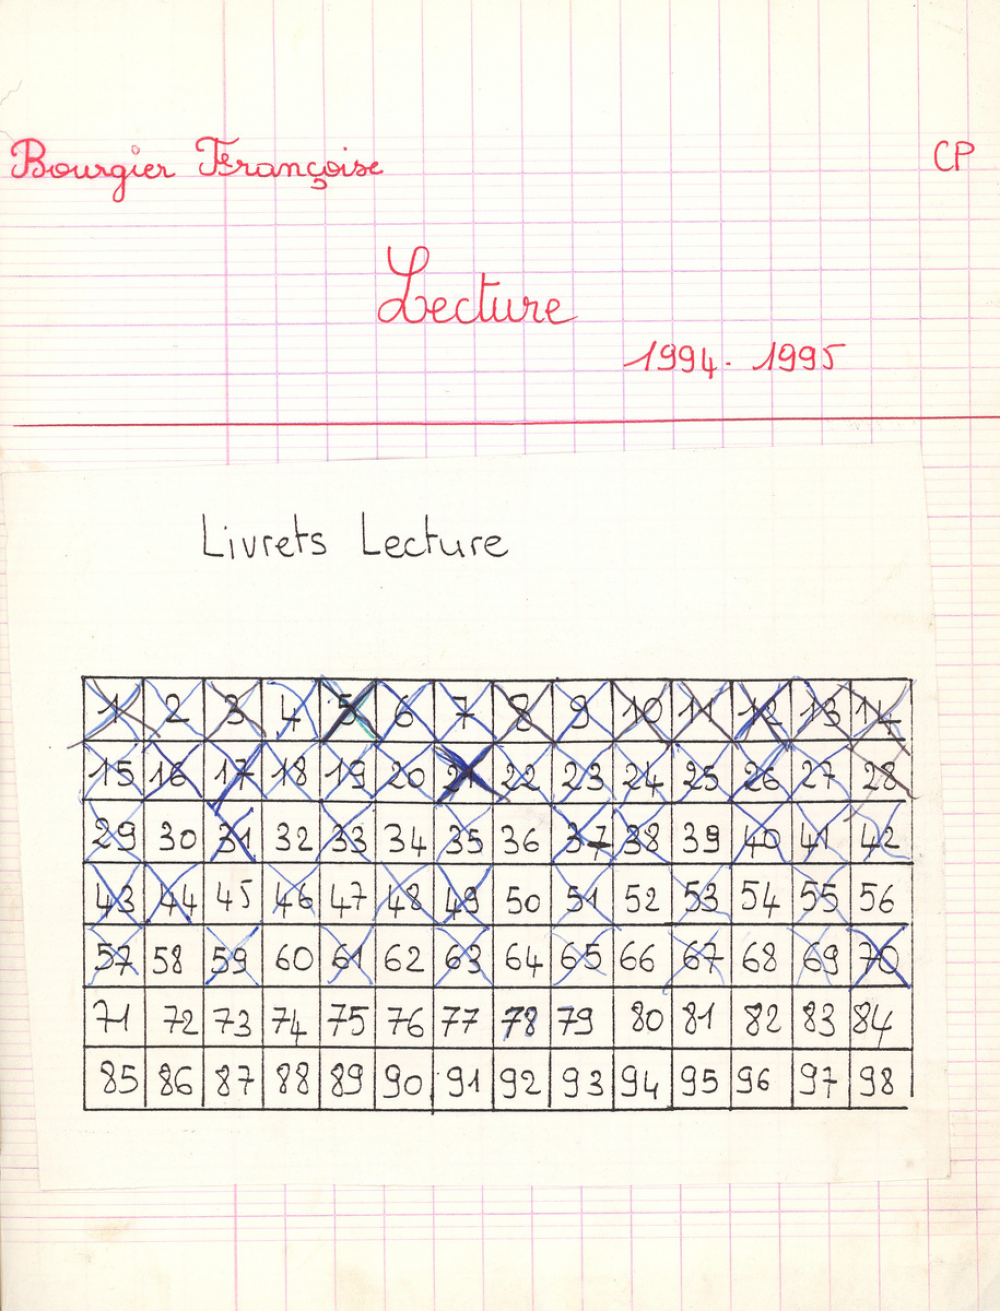 Bourgier Françoise CP
Lecture
1994-1995
Livrets Lecture
1 2 3 4 5 6 7 8 9 10 11 12 13 14
15 16 17 18 19 20 21 22 23 24 25 26 27 28
29 30 31 32 33 34 35 36 37 38 39 40 41 42
43 44 45 46 47 48 49 50 51 52 53 54 55 56
57 58 59 60 61 62 63 64 65 66 67 68 69 70
71 72 73 74 75 76 77 78 79 80 81 82 83 84
85 86 87 88 89 90 91 92 93 94 95 96 97 98